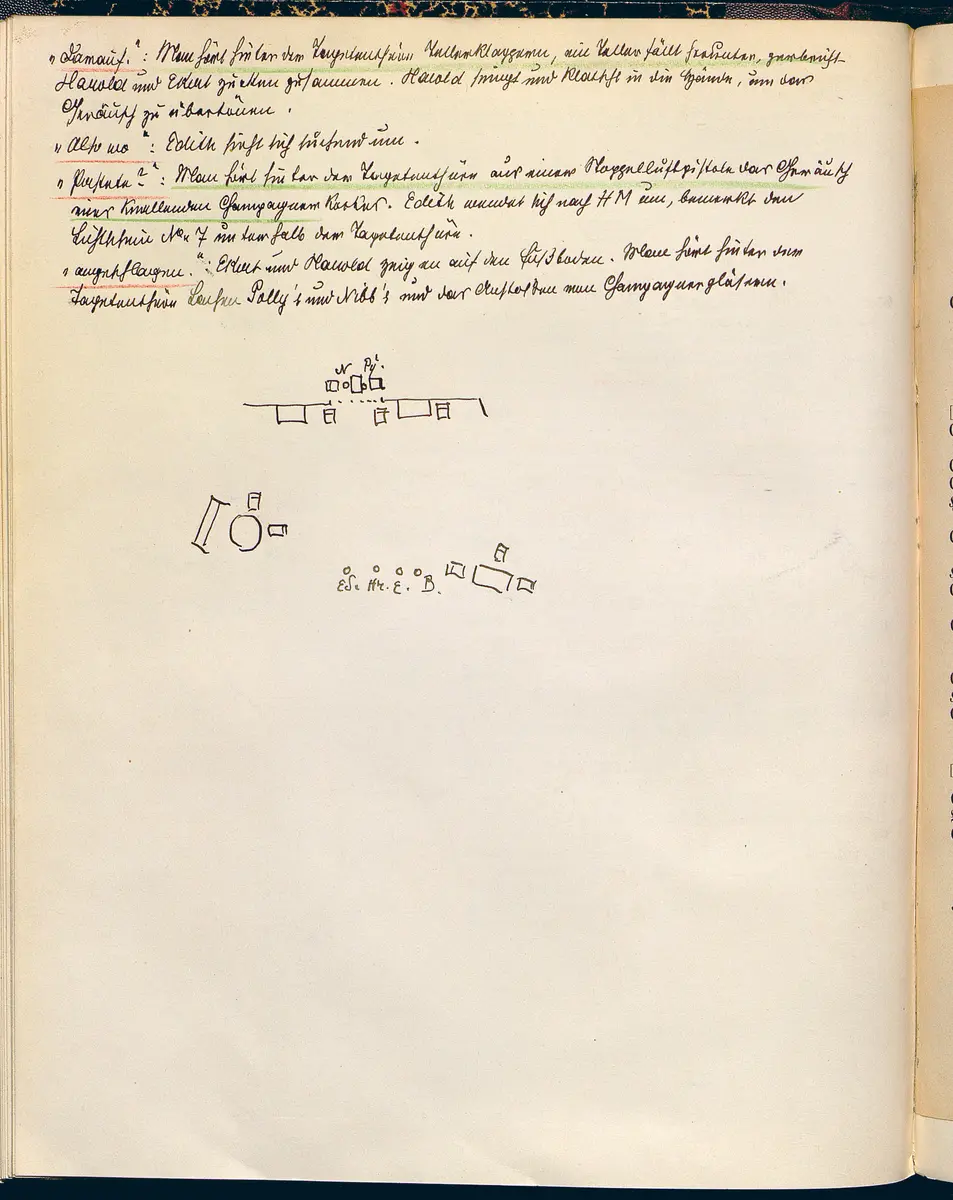 „Darauf.“: Man hört hinter der Tapetenthüre Tellerklappern, ein Teller fällt herunter, zerbricht
Harold und Ekart zucken zusammen. Harold singt und klatscht in die Hände, um das
Geräusch zu übertönen.
„Also wo“: Edith sieht sich suchend um.
„Pastete?“: Man hört hinter der Tapetenthüre aus einer Stoppelluftpistole das Geräusch
eines knallenden Champagner Korkes. Edith wendet sich nach HM um, bemerkt den
Lichtschein No. 7 unterhalb der Tapetenthüre.
„angeschlagen.“: Ekart und Harold zeigen auf den Fußboden. Man hört hinter der
Tapetenthüre Lachen Polly's und Nibb's und das Anstoßen von Champagnergläsern.
N Py.
Ed. Hr. E. B.